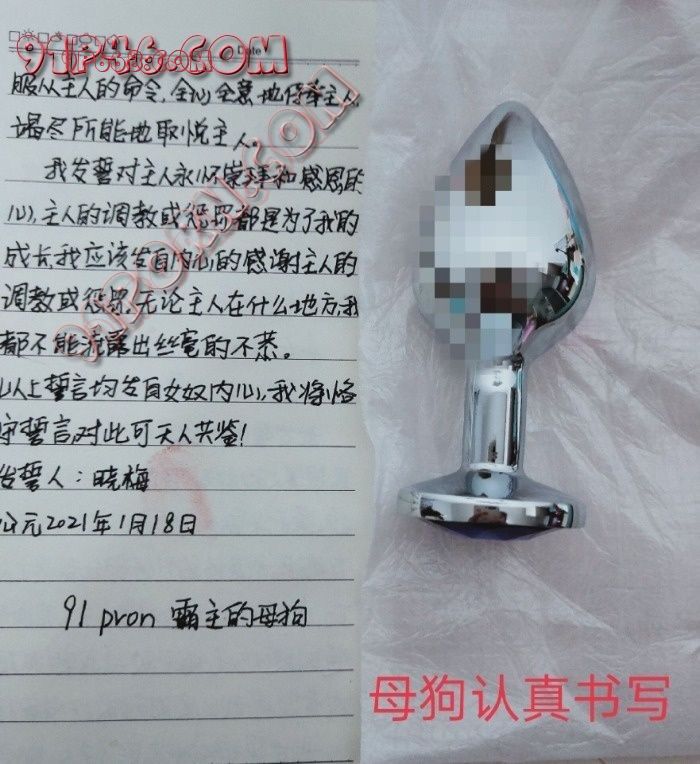 91P46.COM
Date
服从主人的命令,全心全意地侍奉主人
竭尽所能地取悦主人。
我发誓对主人永怀崇拜和感恩的
心,主人的调教或惩罚都是为了我的
成长,我应该发自内心的感谢主人的
调教或惩罚,无论主人在什么地方,我
都不能流露出丝毫的不恭。
以上誓言均发自女奴内心,我将恪
守誓言对此可天人共鉴!
发誓人:晓梅
公元2021年1月18日
91 pron 霸主的母狗
母狗认真书写